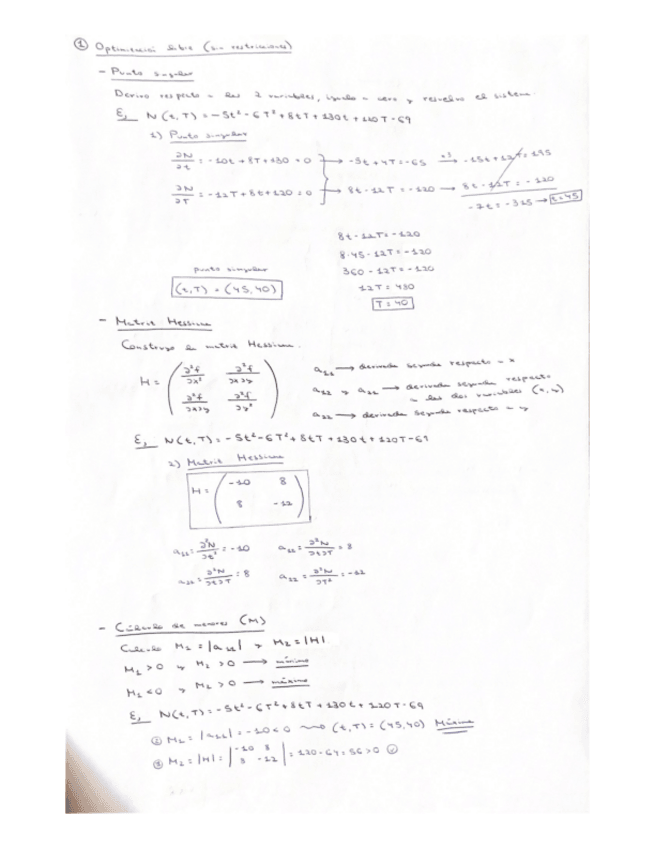 ① Optimización libre (sin restricciones)
- Punto singular
Derivo respecto a las 2 variables, igualo a cero y resuelvo el sistema.
Ej N(t,T) = -5t² - 6T² + 8tT + 130t + 120T - 69
1) Punto singular
∂N/∂t = -10t + 8T + 130 = 0 → -5t + 4T = -65 ·3→ -15t + 12T = -195
∂N/∂T = -12T + 8t + 120 = 0 → 8t - 12T = -120 → 8t - 12T = -120
-7t = -315 → t = 45
8t - 12T = -120
8·45 - 12T = -120
360 - 12T = -120
12T = 480
T = 40
punto singular
(t,T) = (45,40)
- Matriz Hessiana
Construyo la matriz Hessiana.
H = ( ∂²f/∂x² ∂²f/∂x∂y
∂²f/∂x∂y ∂²f/∂y² )
a₁₁ → derivada segunda respecto a x
a₁₂ y a₂₁ → derivada segunda respecto
a las dos variables (x,y)
a₂₂ → derivada segunda respecto a y
Ej N(t,T) = -5t² - 6T² + 8tT + 130t + 120T - 69
2) Matriz Hessiana
H = ( -10 8
8 -12 )
a₁₁ = ∂²N/∂t² = -10 a₁₂ = ∂²N/∂t∂T = 8
a₂₁ = ∂²N/∂t∂T = 8 a₂₂ = ∂²N/∂T² = -12
- Cálculo de menores (M)
Calculo M₁ = |a₁₁| y M₂ = |H|.
M₁ > 0 y M₂ > 0 → mínimo
M₁ < 0 y M₂ > 0 → máximo
Ej N(t,T) = -5t² - 6T² + 8tT + 130t + 120T - 69
① M₁ = |a₁₁| = -10 < 0 ⟿ (t,T) = (45,40) Máximo
② M₂ = |H| = | -10 8
8 -12 | = 120 - 64 = 56 > 0